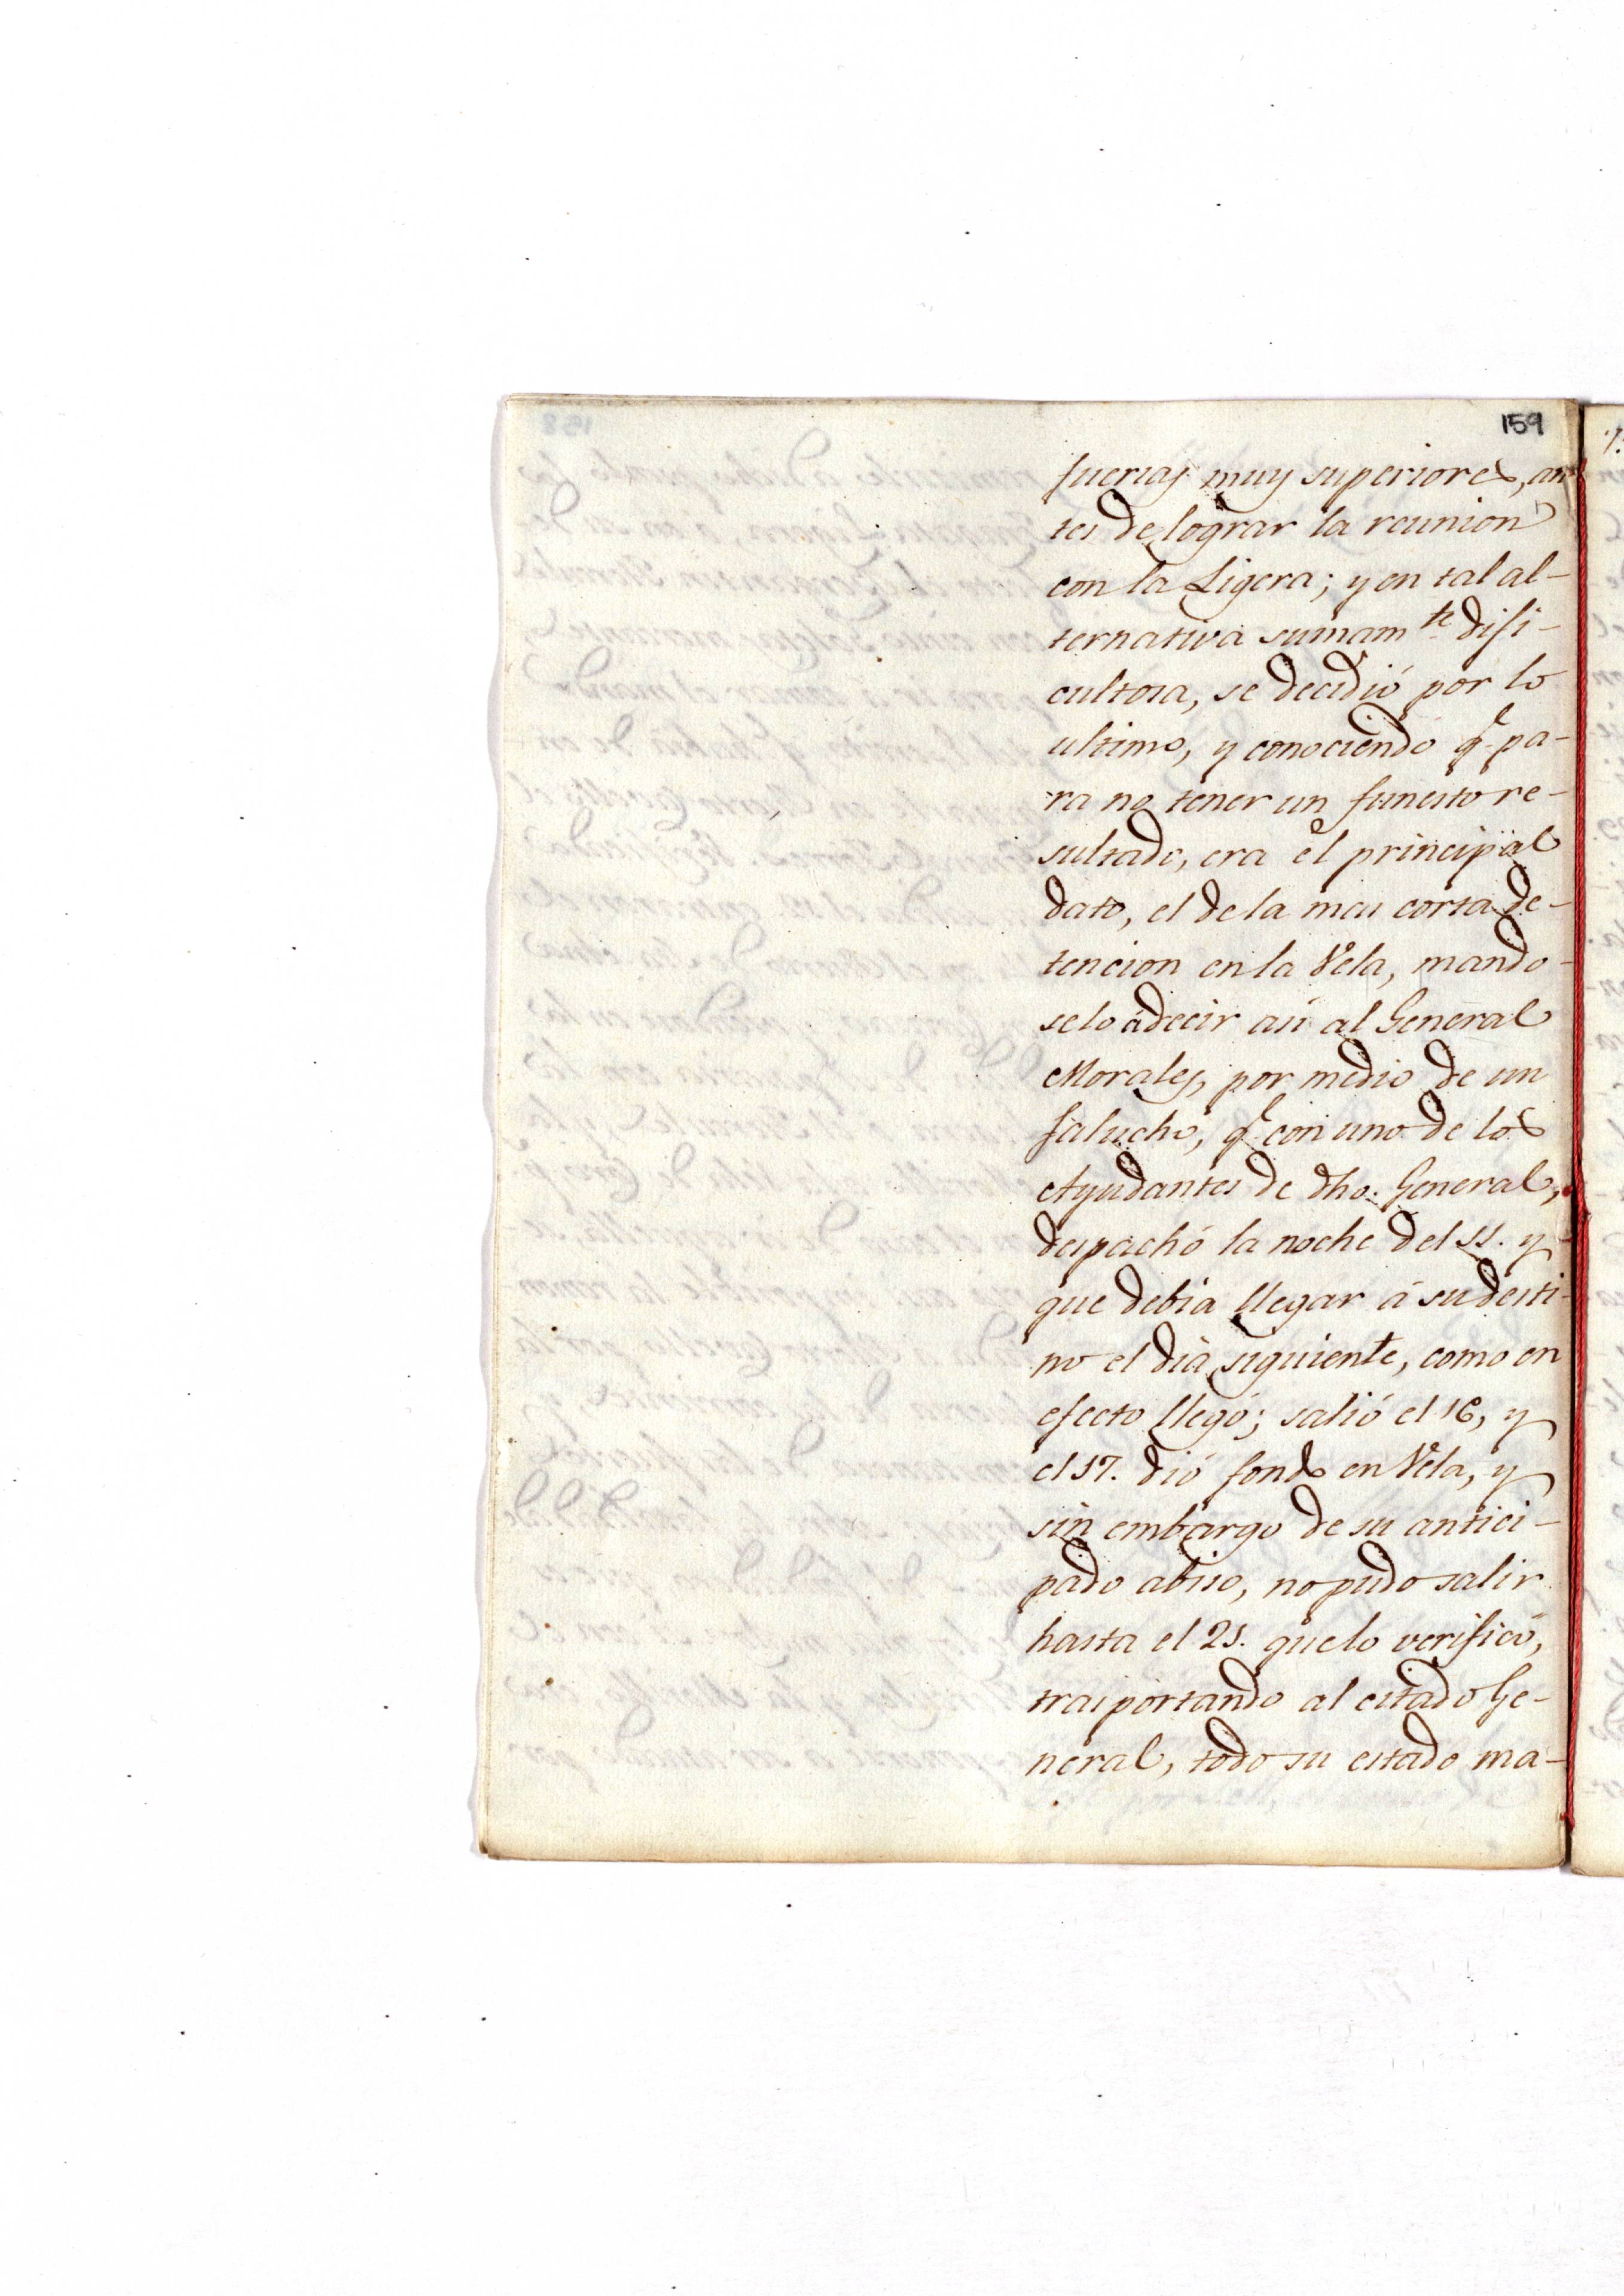 159
fuerzas muy superiores, an-
tes de lograr la reunion
con la Ligera; y en tal al-
ternativa sumam.te difi-
cultosa, se decidió por lo
ultimo, y conociendo q.e pa-
ra no tener un funesto re-
sultado, era el principal
dato, el de la mas corta de-
tencion en la Vela, mando-
selo á decir asi al General
Morales, por medio de un
falucho, q.e con uno de los
Ayudantes de dho. General,
despachó la noche del 11. y
que debia llegar á su desti-
no el dia siguiente, como en
efecto llegó; salió el 16, y
el 17. dió fondo en Vela, y
sin embargo de su antici-
pado abiso, no pudo salir
hasta el 21. que lo verificó,
trasportando al citado Ge-
neral, todo su estado ma-